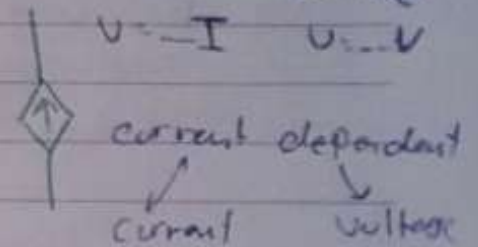 V - I V - V
current dependent
current voltage